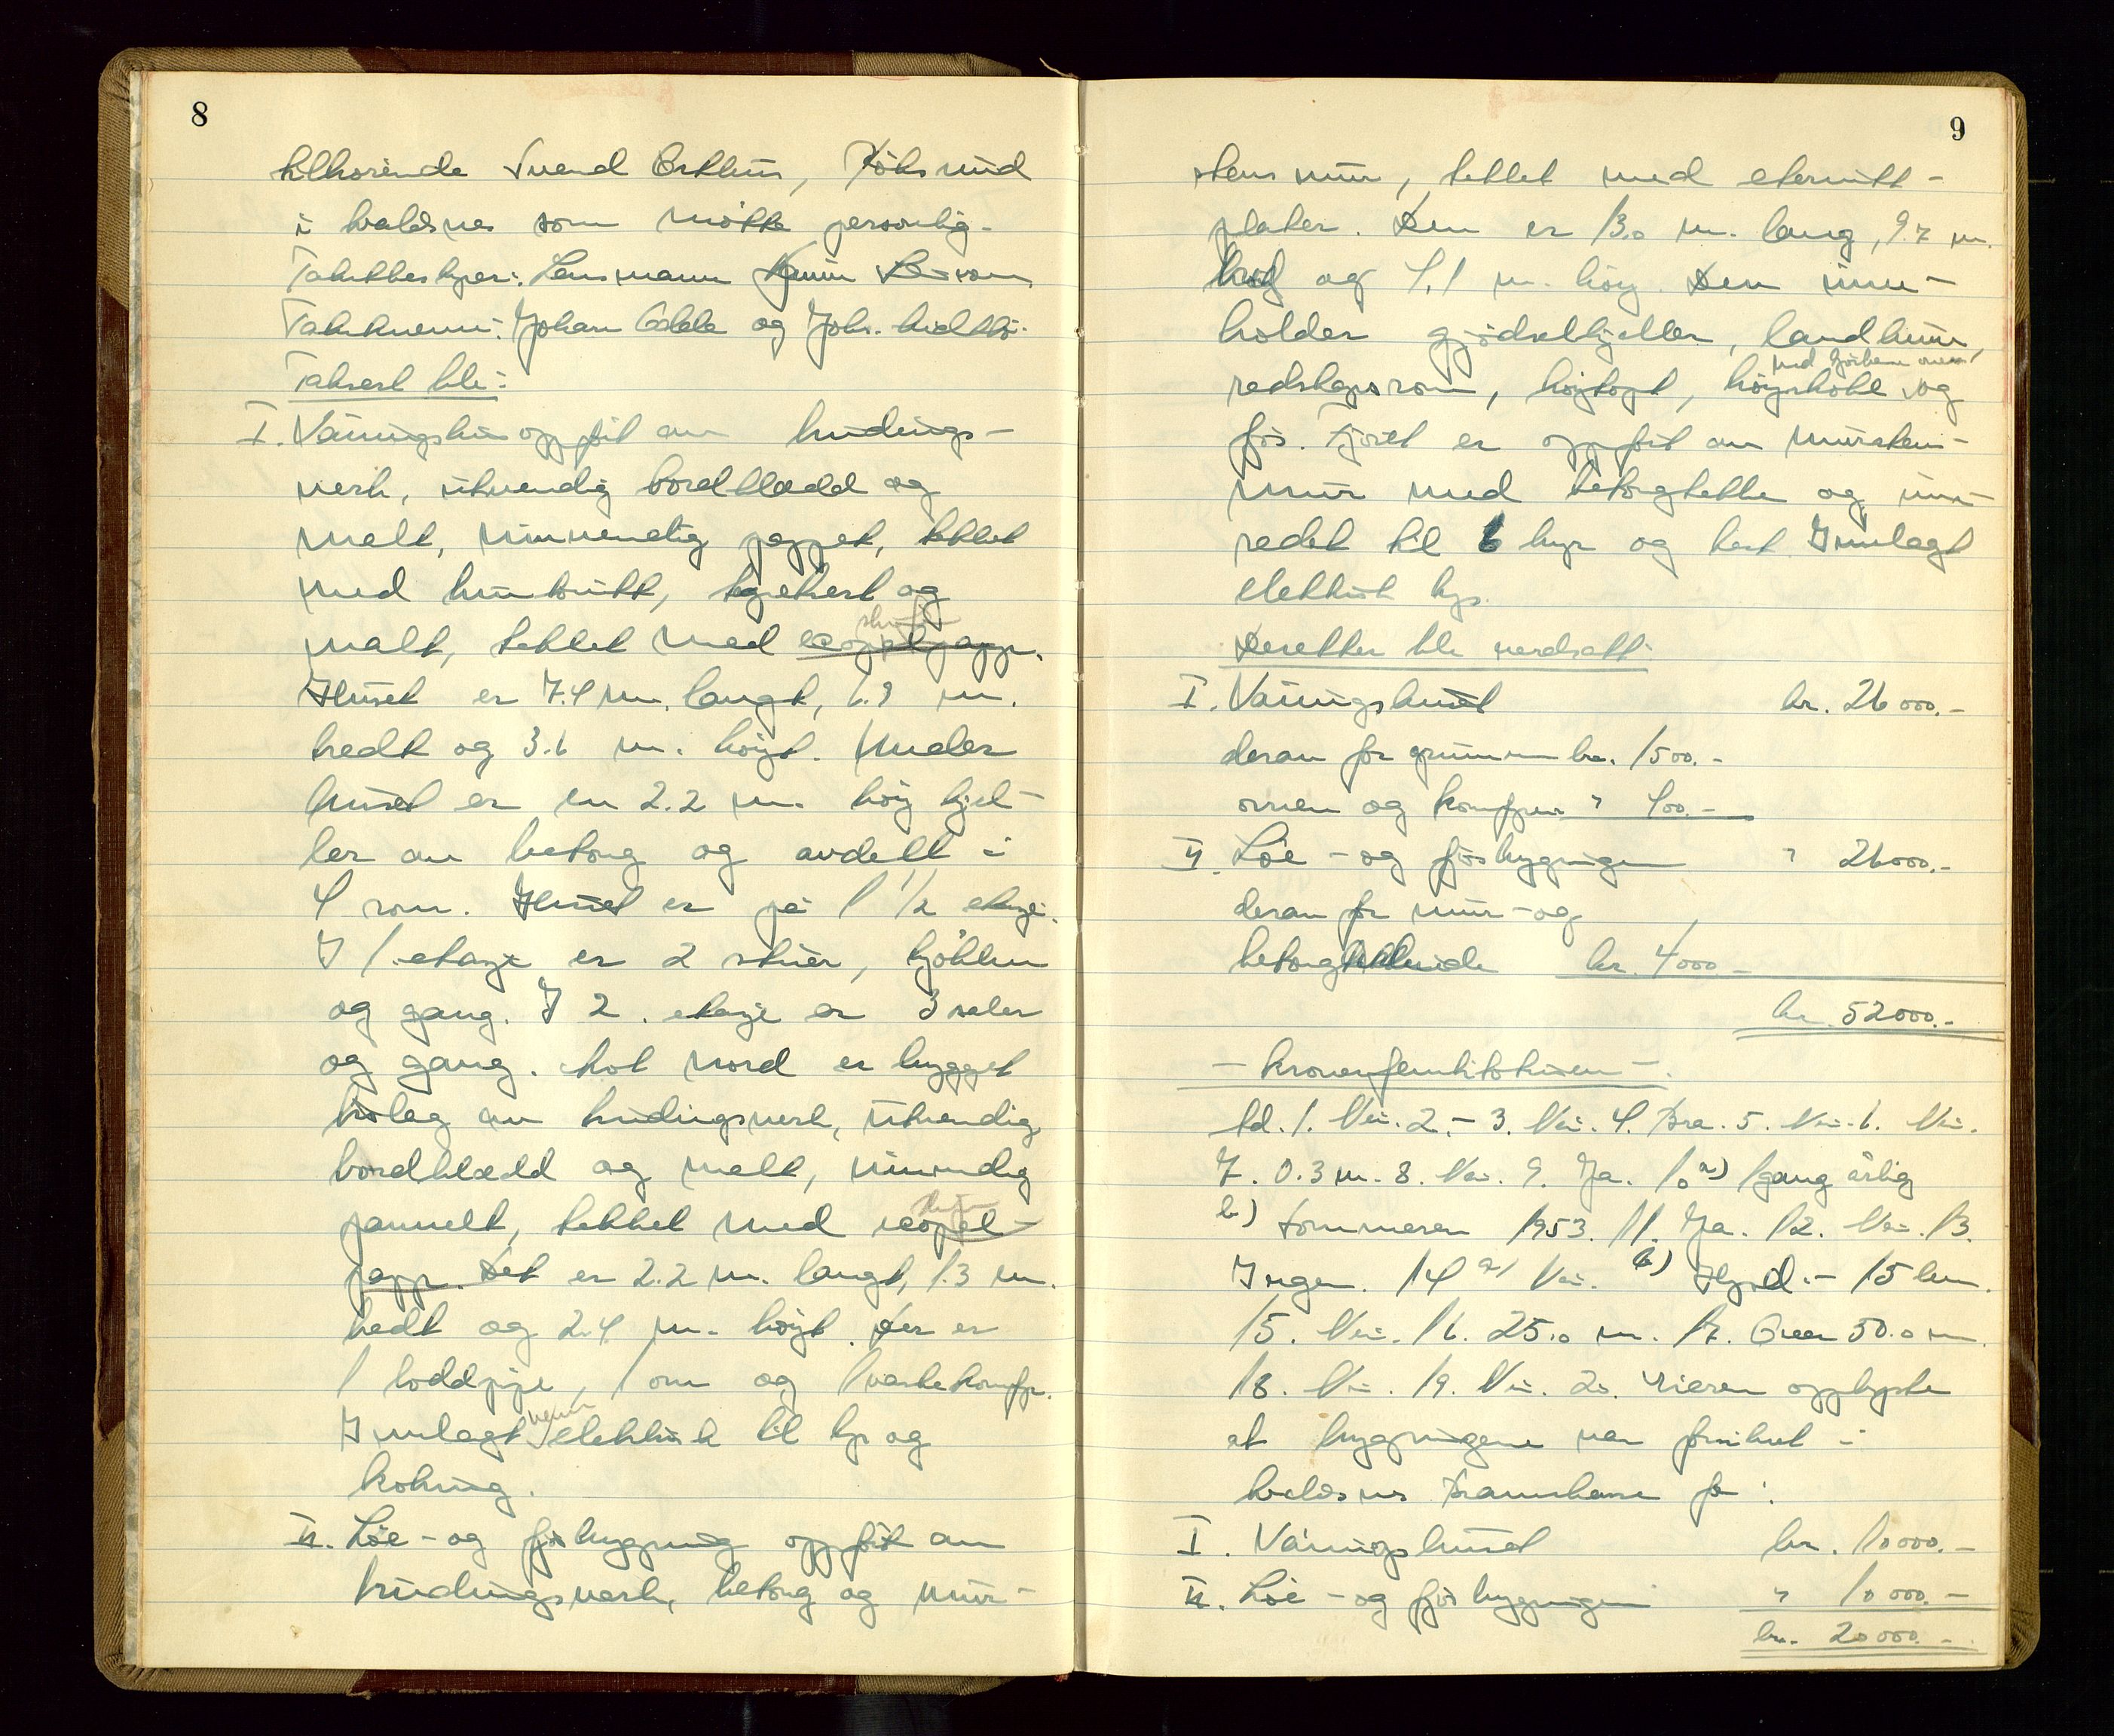 8
tilhørende Svend Østhus, Røksund
i Avaldsnes som møtte personlig.
Takstbestyrer: Lensmann
Takstmenn: Johan Odde og Johs.
Taksert ble:
I. Våningshus oppført av bindings-
verk, utvendig bordklædd og
malt, innvendig pappet, tettet
med huntonitt, tapetsert og
malt, tekket med asfaltpapp.
skifer
Huset er 7.4 m. langt, 6.9 m.
bredt og 3.6 m. høyt. Under
huset er en 2.2 m. høy kjel-
ler av betong og avdelt i
4 rom. Huset er på 1 1/2 etasje.
I 1. etasje er 2 stuer, kjøkken
og gang. I 2. etasje er 3 saler
og gang. Mot nord er bygget
bislag av bindingsverk, utvendig
bordklædd og malt, innvendig
skifer
panelt, tekket med asfalt-
papp. Det er 2.2 m. langt, 1.3 m.
bredt og 2.4 m. høyt. Der er
1 loddpipe, 1 ovn og 1 vaskekomfyr.
Innlagt elektrisk til lys og
koking.
II. Løe- og fjøsbygning oppført av
bindingsverk, betong og mur-
9
stens mur, tekket med eternitt-
plater. Den er 13.0 m. lang, 9.7 m.
bred og 4.1 m. høy. Den inne-
holder gjødselkjeller, landkum,
redskapsrom, høytopt, høygolv og
fjøs. Fjøset er oppført av murstens-
mur med betongdekke og inn-
redet til 6 kyr og hest. Innlagt
elektrisk lys.
Deretter ble verdsatt:
I. Våningshuset kr. 26000.-
derav for grunnmur kr. 1500.-
ovner og komfyrer " 400.-
II. Løe- og fjøsbygningen " 26000.-
derav for mur- og
betong kr. 4000.-
kr. 52000.-
- Kronerfemtitotusen -.
Ad. 1. Nei. 2.- 3. Nei. 4. Bra. 5. Nei. 6. Nei.
7. 0.3 m. 8. Nei. 9. Ja. 10 a) 1 gang årlig
b) Sommeren 1953. 11. Ja. 12. Nei. 13.
Ingen. 14 a) Nei. b) Hjord.- 15 km.
15. Nei. 16. 25.0 m. 17. Over 50.0 m.
18. Nei. 19. Nei. 20. Eieren opplyste
at bygningene var forsikret i
Avaldsnes Brannkasse for:
I. Våningshuset kr. 10000.-
II. Løe- og fjøsbygningen " 10000.-
kr. 20000.-